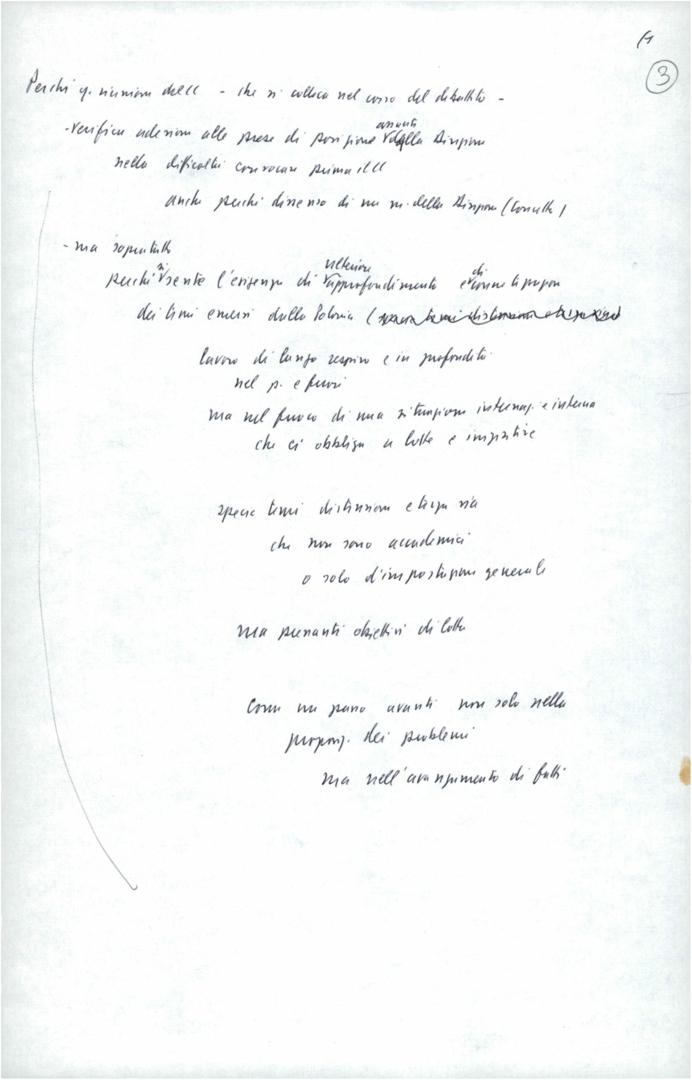 3
Perché q. riunione del CC - che si colloca nel corso del dibattito -
- verifica adesione alle prese di posizione assunte dalla Direzione
nella difficoltà convocare prima il CC
anche perché dissenso di un m. della Direzione (Cossutta)
- ma soprattutto
perché si sente l'esigenza di ulteriore approfondimento e di
dei temi emersi dalla Polonia (
lavoro di lungo respiro e in profondità
nel p. e fuori
ma nel fuoco di una situazione internaz. e interna
che ci obbliga a lotte e iniziative
specie temi distensione e terza via
che non sono accademici
o solo d'impostazione generale
ma pressanti obiettivi di lotta
Come un passo avanti non solo nella
propos. dei problemi
ma nell'avanzamento di fatti